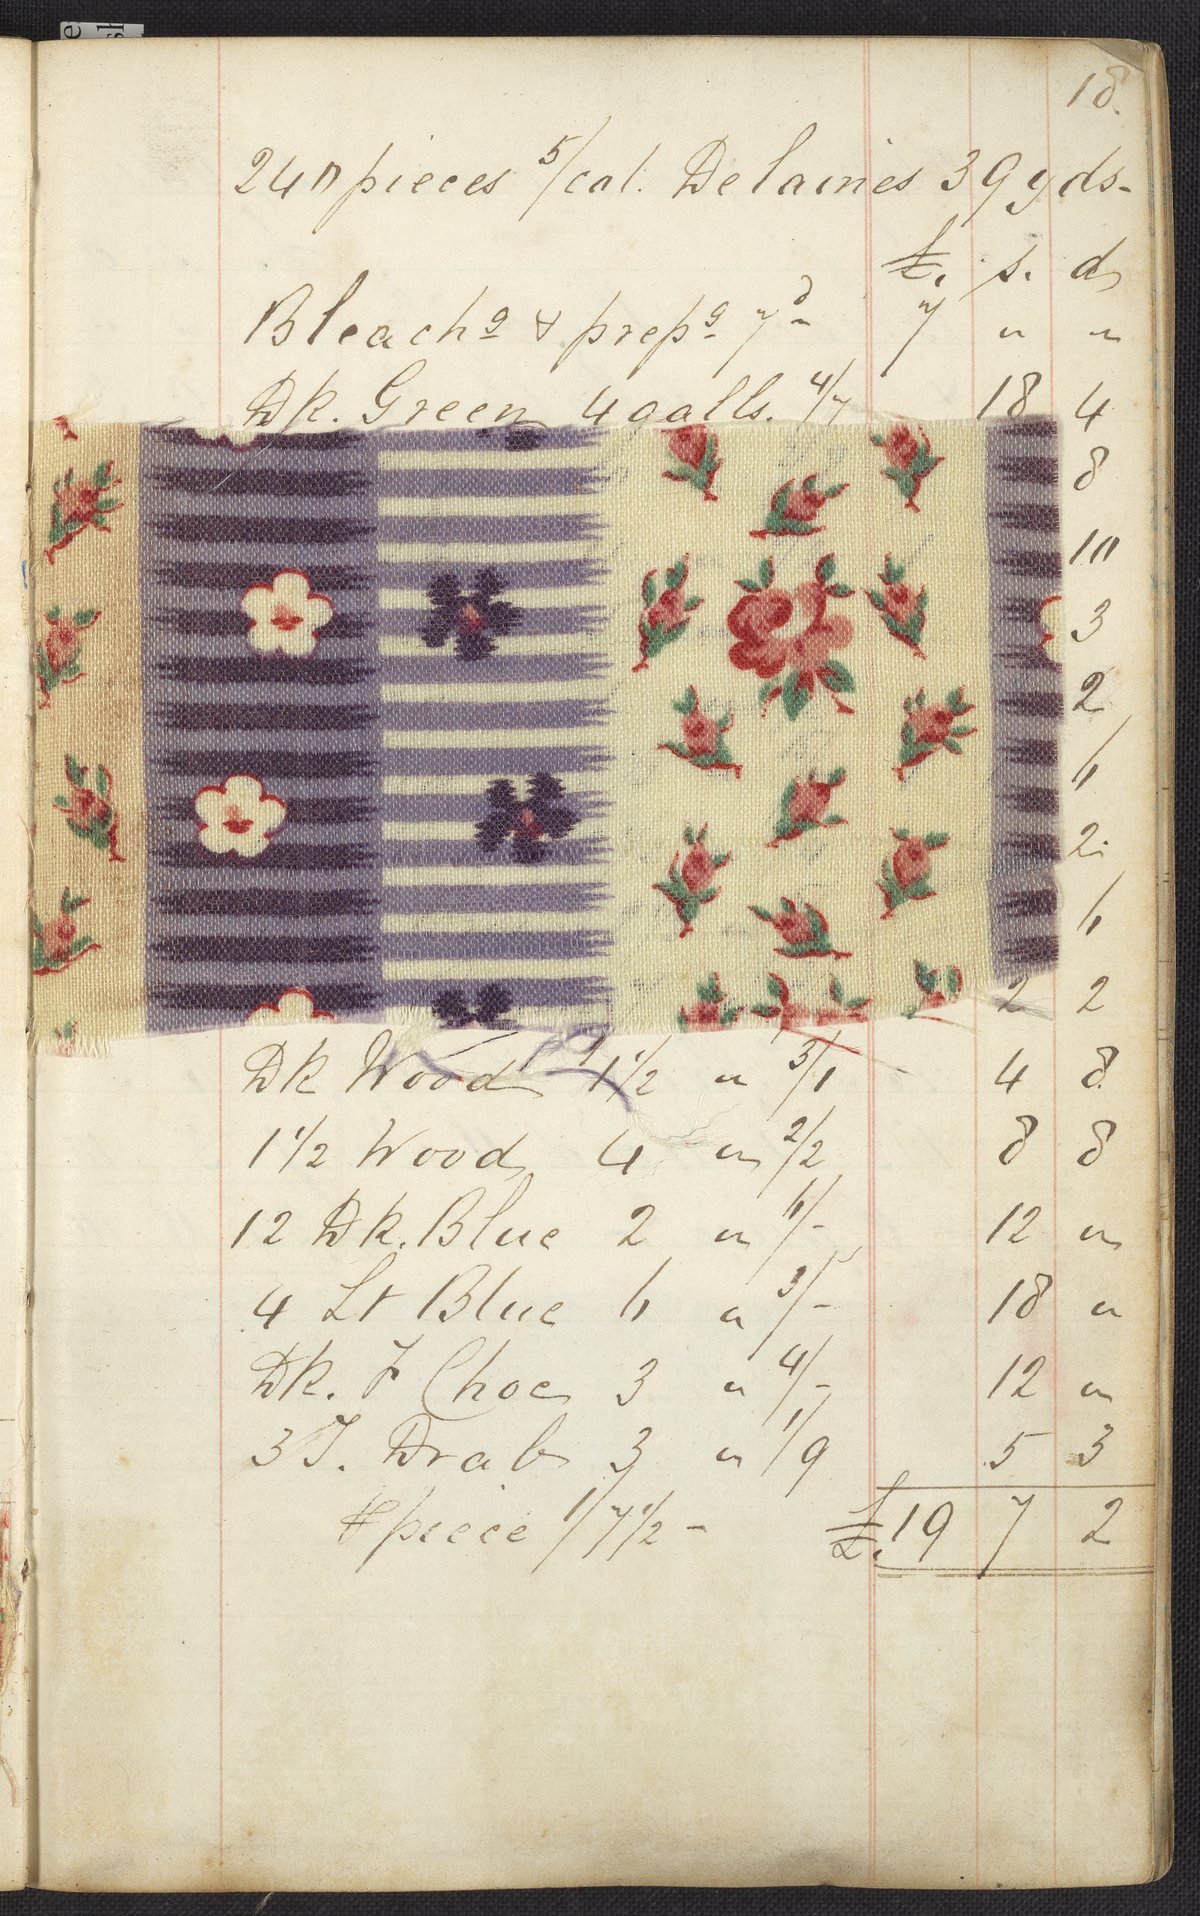 18.
240 pieces 5/col. Delaines 39 yds-
£. s. d
Bleachg & prepg 7d 7 " "
Dk. Green 4 galls. 4/7 18 4
8
10
3
2
6
2
6
2 2
Dk Wood 1 1/2 " 3/1 4 8
1 1/2 Wood 4 " 2/2 8 8
12 Dk. Blue 2 " 6/- 12 "
4 Lt Blue 6 " 3/- 18 "
Dk. F Choc 3 " 4/- 12 "
3 F. Drab 3 " 1/9 5 3
⅌ piece 1/7 1/2 - £. 19 7 2